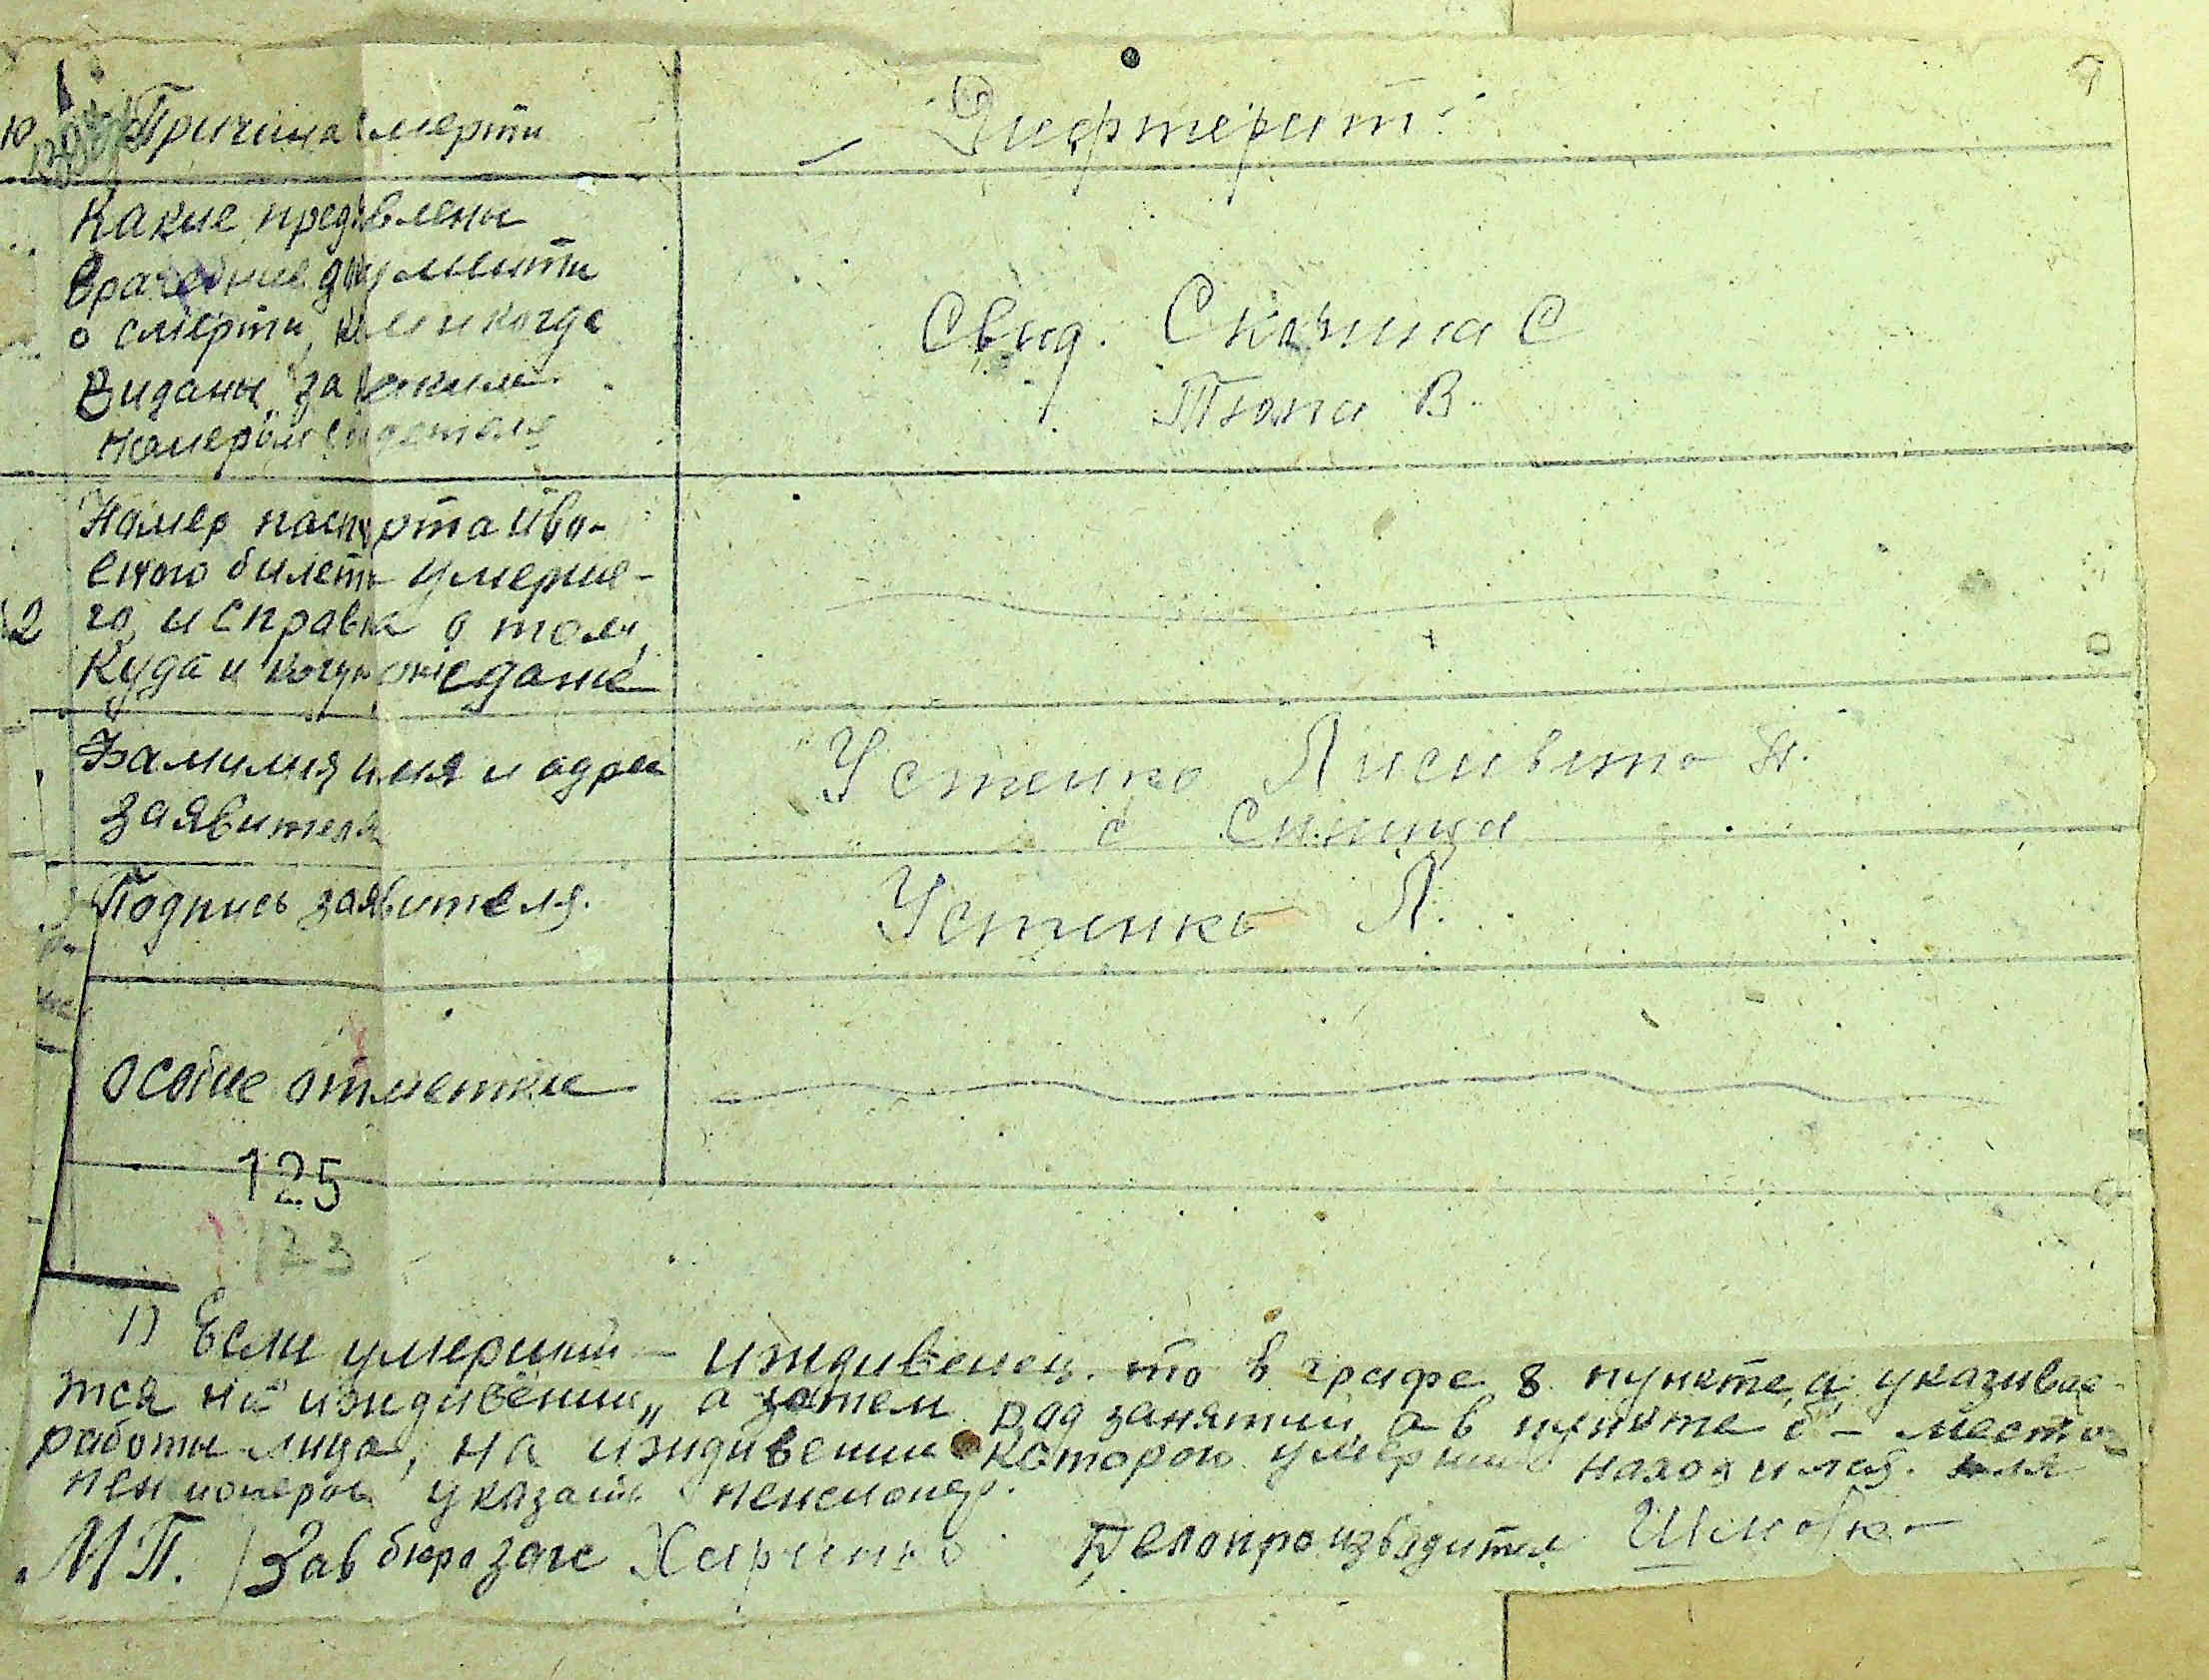 Причина смерти
Дифтерит
Какие предявлены
врачебние документи
о смерти, кем и когда
видани за каким
номером свидетеля
Свид. С
В.
Номер паспорта и во-
еного билета умерше-
го и справка о том,
2
куда и когда они сданы
Фамилия имя и адрес
заявителя
Устенко Лисивита П.
с
Подпись заявителя.
Устенко Л.
особие отметки
125
123
1) Если умерший - иждивенец, то в графе 8 пункте а указивае-
тся на иждивении„ а затем род занятий, а в пункте б - место
работы лица, на иждивении которого умерший находился. для
пенсионеров указать пенсионер.
М П. Зав бюро загс Харченко Делопроизводител